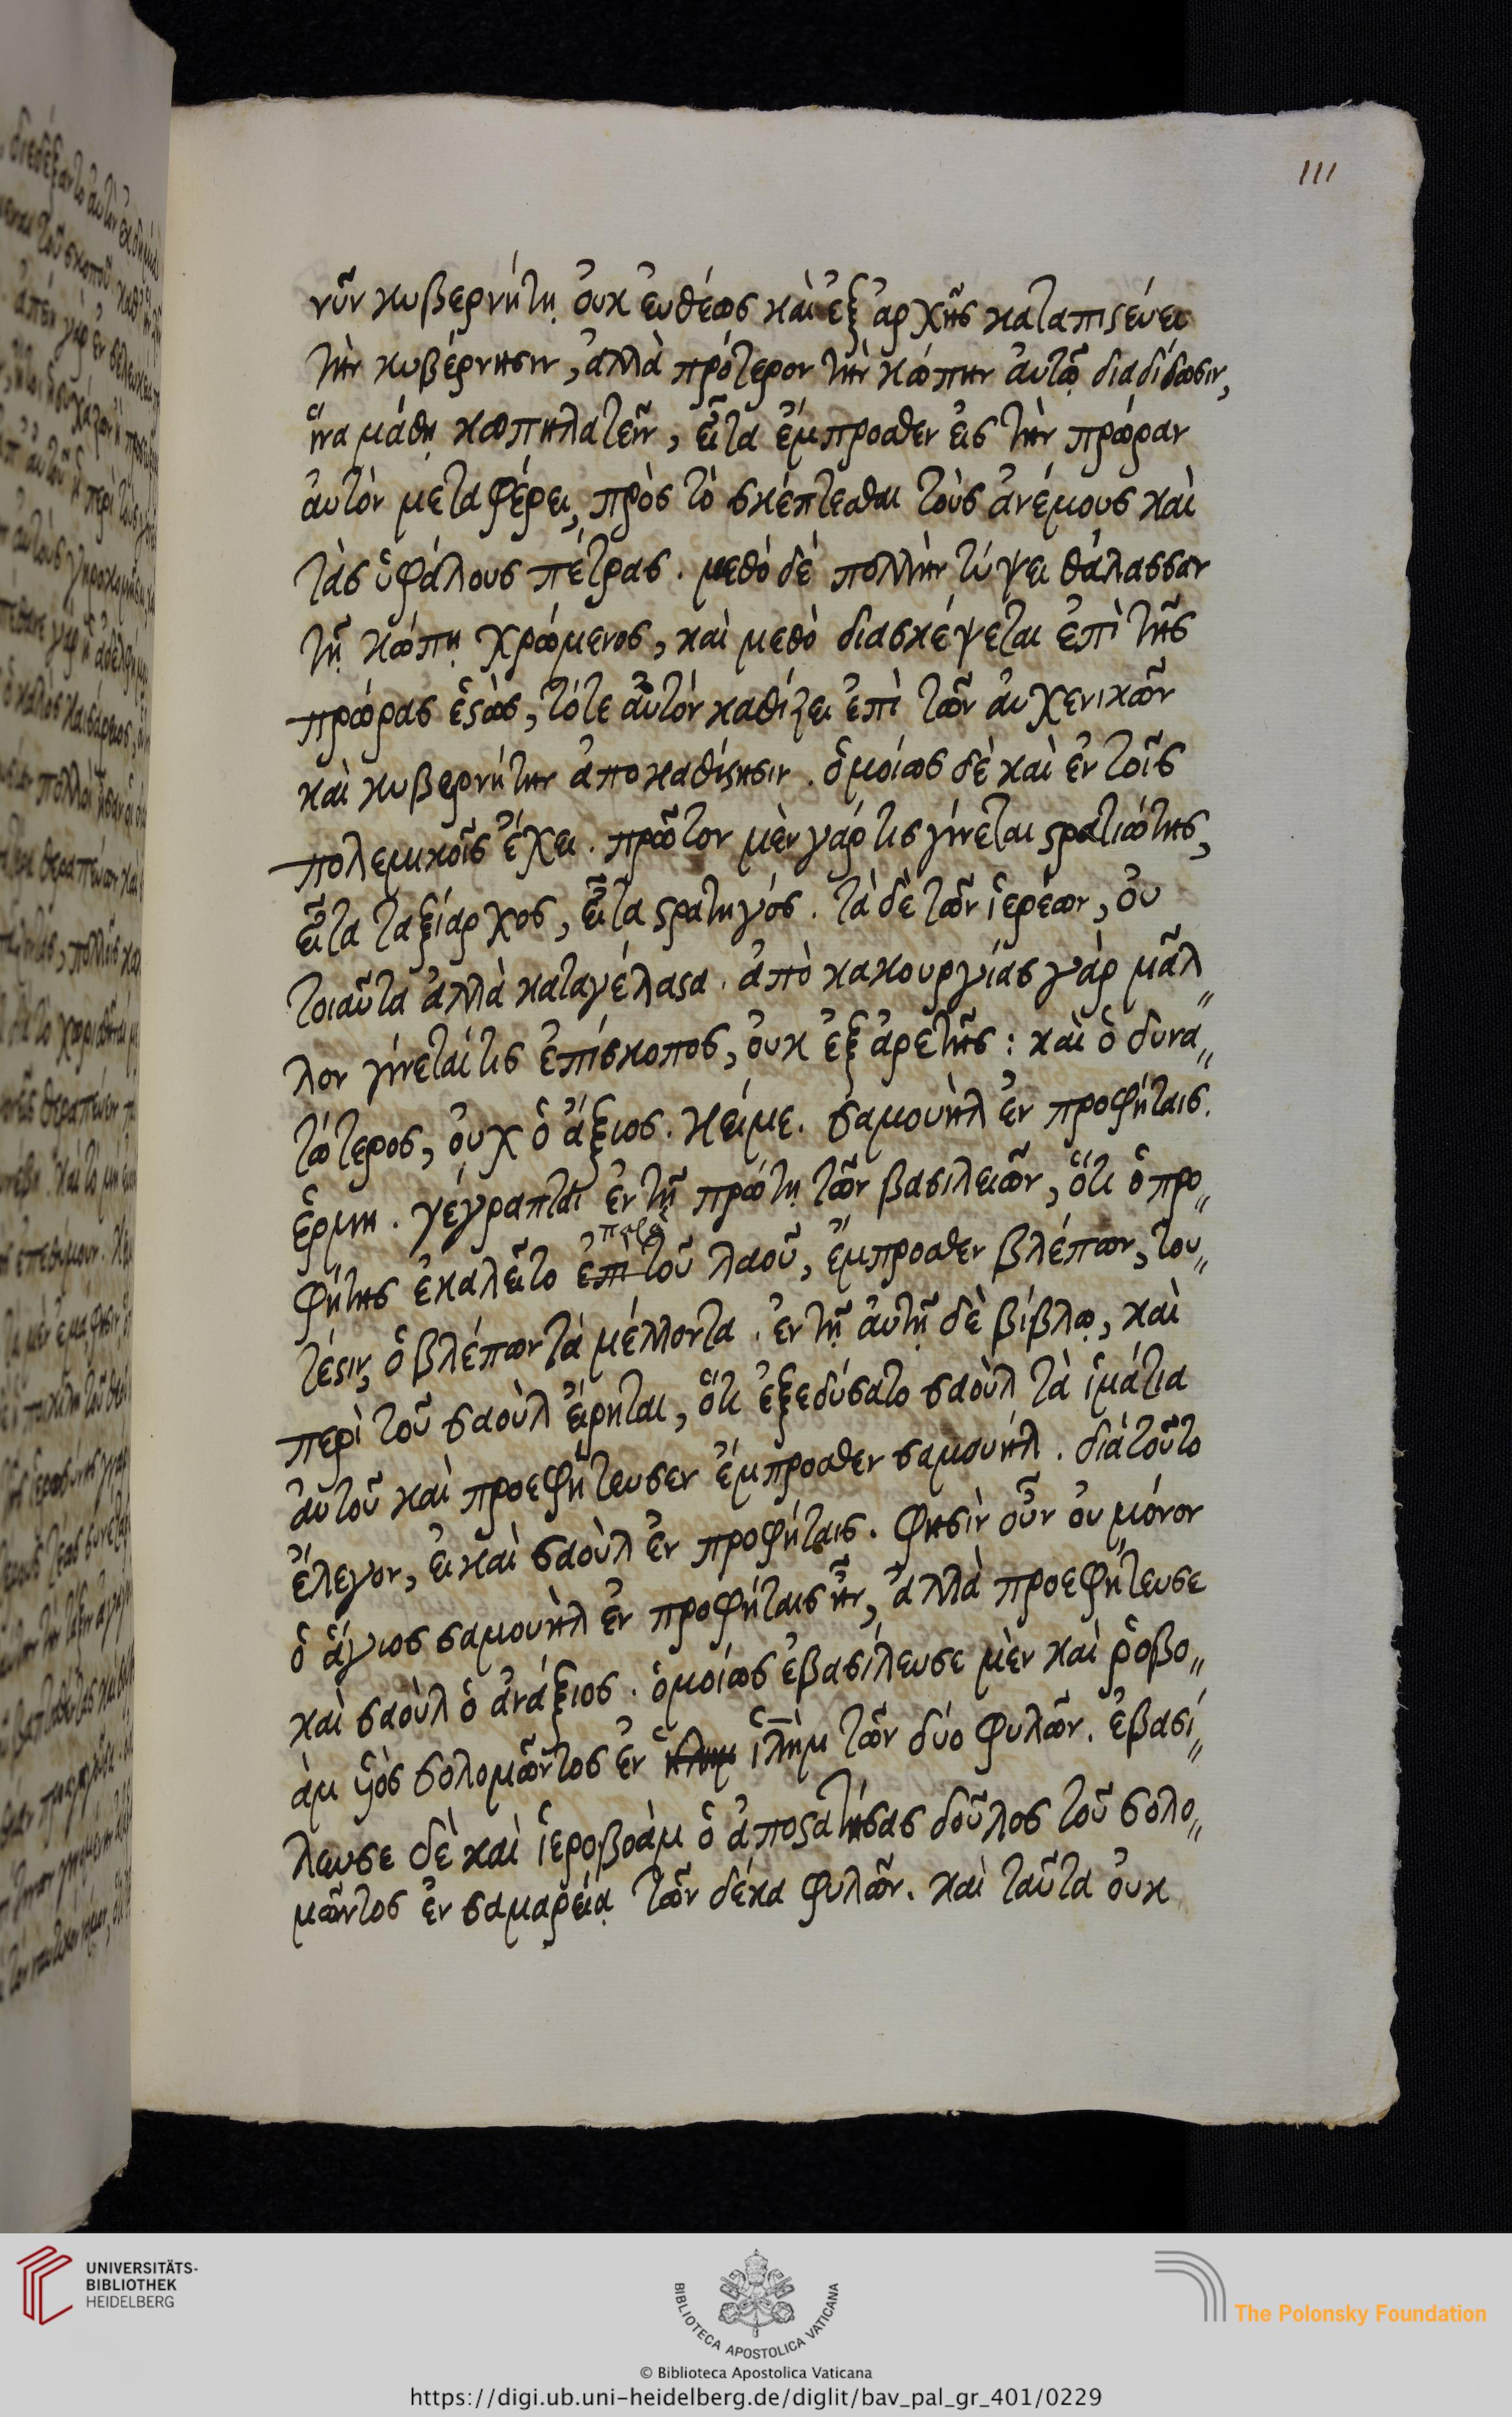 111
νῦν κυβερνήτῃ οὐκ εὐθέως καὶ ἐξ ἀρχῆς καταπιστεύει
τὴν κυβέρνησιν, ἀλλὰ πρότερον τὴν κώπην αὐτῷ διαδίδωσιν,
ἵνα μάθῃ κωπηλατεῖν, εἶτα ἔμπροσθεν εἰς τὴν πρώραν
αὐτὸν μεταφέρει, πρὸς τὸ σκέπτεσθαι τοὺς ἀνέμους καὶ
τὰς ὑφάλους πέτρας. μεθὸ δὲ πολλὴν τύψει θάλασσαν
τῇ κώπῃ χρώμενος, καὶ μεθὸ διασκέψεται ἐπὶ τῆς
πρώρας ἑστὼς, τότε αὐτὸν καθίζει ἐπὶ τῶν αὐχενικῶν
καὶ κυβερνήτην ἀποκαθίστησιν. ὁμοίως δὲ καὶ ἐν τοῖς
πολεμικοῖς ἔχει. πρῶτον μὲν γάρ τις γίνεται στρατιώτης,
εἶτα ταξίαρχος, εἶτα στρατηγός. τὰ δὲ τῶν ἱερέων, οὐ
τοιαῦτα ἀλλὰ καταγέλαστα. ἀπὸ κακουργίας γὰρ μᾶλ〃
λον γίνεταί τις ἐπίσκοπος, οὐκ ἐξ ἀρετῆς : καὶ ὁ δυνα〃
τώτερος, οὐχ ὁ ἄξιος. Κείμε. σαμουὴλ ἐν προφήταις.
ἑρμη. γέγραπται ἐν τῇ πρώτῃ τῶν βασιλειῶν, ὅτι ὁ προ〃
παρὰ
φήτης ἐκαλεῖτο ἐπὶ τοῦ λαοῦ, ἔμπροσθεν βλέπων, του〃
τέστιν, ὁ βλέπων τὰ μέλλοντα. ἐν τῇ αὐτῇ δὲ βίβλῳ, καὶ
περὶ τοῦ σαοὺλ εἴρηται, ὅτι ἐξεδύσατο σαοὺλ τὰ ἱμάτια
αὐτοῦ καὶ προεφήτευσεν ἔμπροσθεν σαμουήλ. διὰ τοῦτο
ἔλεγον, εἰ καὶ σαοὺλ ἐν προφήταις. Φησὶν οὖν οὐ μόνον
ὁ ἅγιος σαμουὴλ ἐν προφήταις ἦν, ἀλλὰ προεφήτευσε
καὶ σαοὺλ ὁ ἀνάξιος. ὁμοίως ἐβασίλευσε μὲν καὶ ῥοβο〃
ὰμ υἱὸς σολομῶντος ἐν ἱλημ ἱλὴμ τῶν δύο φυλῶν. ἐβασί〃
λευσε δὲ καὶ ἱεροβοὰμ ὁ ἀποστατήσας δοῦλος τοῦ σολο〃
μῶντος ἐν σαμαρείᾳ τῶν δέκα φυλῶν. καὶ ταῦτα οὐκ
UNIVERSITÄTS-
BIBLIOTHEK
HEIDELBERG
BIBLIOTECA APOSTOLICA VATICANA
The Polonsky Foundation
© Biblioteca Apostolica Vaticana
https://digi.ub.uni-heidelberg.de/diglit/bav_pal_gr_401/0229